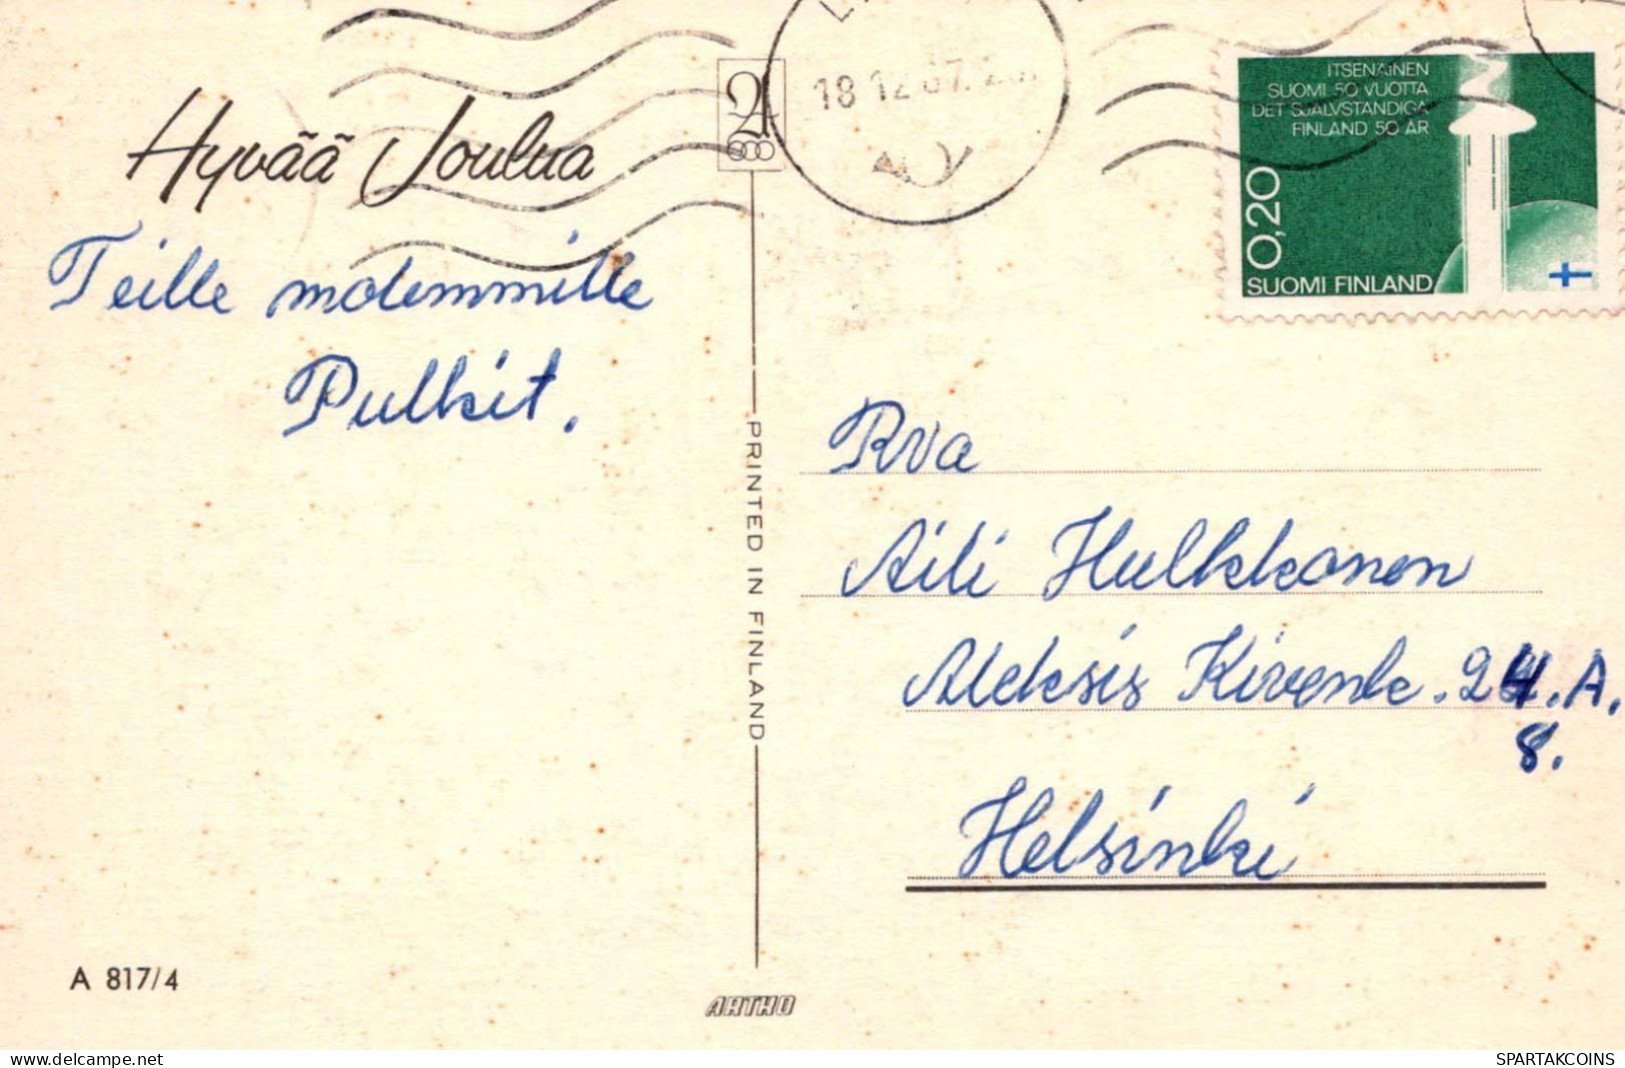 Hyvää Joulua
Teille molemmille
Pulkit.
A 817/4
PRINTED IN FINLAND
ARTKO
18 12 67
ITSENÄINEN
SUOMI 50 VUOTTA
DET SJÄLVSTÄNDIGA
FINLAND 50 ÅR
0,20
SUOMI FINLAND
Rva
Aili Hulkkonen
Aleksis Kivenk. 24.A.
8.
Helsinki
delcampe.net
SPARTAKCOINS